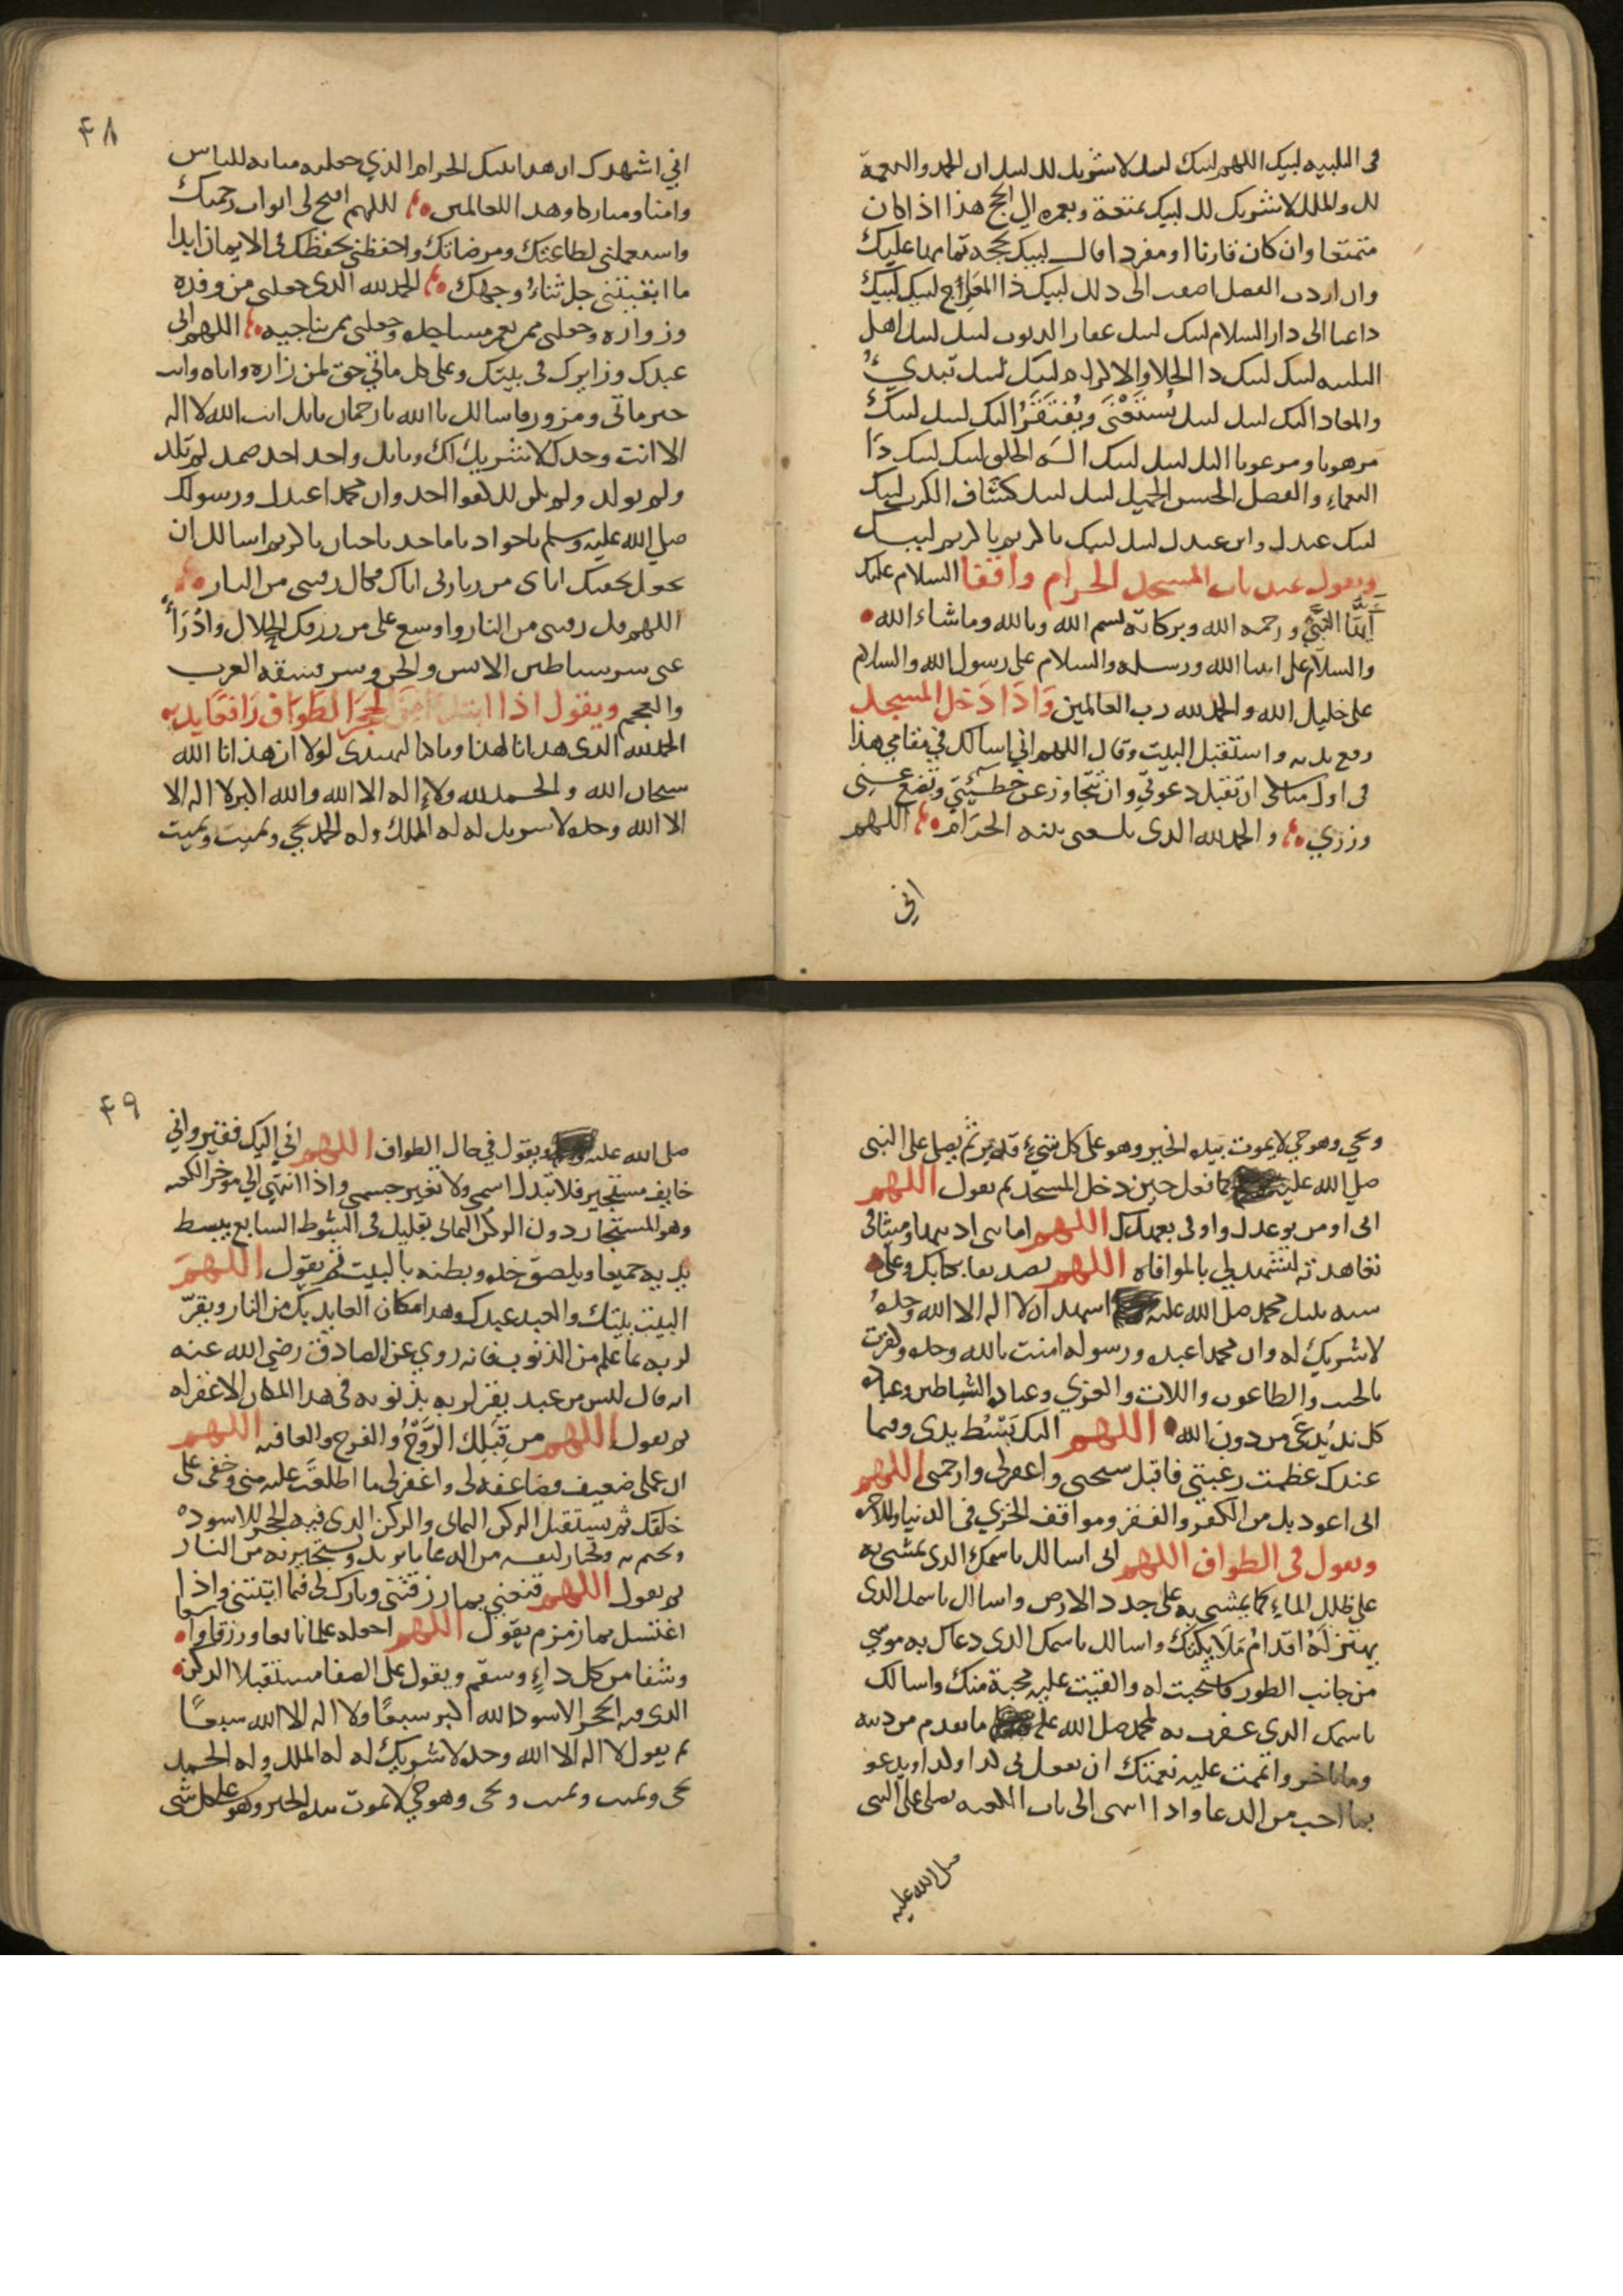 في التلبيه لبيك اللهم لبيك لبيك لا شريك لك لبيك ان الحمد والنعمة
لك والملك لا شريك لك لبيك بمتعة وبعمره الى الحج هذا اذا كان
متمتعا وان كان قارنا او مفردا قال لبيك بحجه تمامها عليك
وان اردت الفضل اضفت الى ذلك لبيك ذا المعارج لبيك لبيك
داعيا الى دار السلام لبيك لبيك غفار الذنوب لبيك لبيك اهل
التلبيه لبيك لبيك ذا الجلال والاكرام لبيك لبيك تبدئ
والمعاد اليك لبيك لبيك تستغني ويفتقر اليك لبيك لبيك
مرهوبا ومرغوبا اليك لبيك لبيك اله الخلق لبيك لبيك ذا
النعماء والفضل الحسن الجميل لبيك لبيك كشاف الكرب لبيك
لبيك عبدك وابن عبدك لبيك لبيك يا كريم يا كريم لبيك
ويقول عند باب المسجد الحرام واقفا السلام عليك
ايها النبي ورحمه الله وبركاته بسم الله وبالله وما شاء الله
والسلام على انبيا الله ورسله والسلام على رسول الله والسلام
على خليل الله والحمد لله رب العالمين واذا دخل المسجد
رفع يديه واستقبل البيت وقال اللهم اني اسالك في مقامي هذا
في اول مناسكي ان تقبل دعوتي وان تتجاوز عن خطيئتي وتضع عني
وزري والحمد لله الذي بلغني بيته الحرام اللهم
اني
۴۸
اني اشهدك ان هذا بيتك الحرام الذي جعلته مثابه للناس
وامنا ومباركا وهدا للعالمين اللهم افتح لي ابواب رحمتك
واستعملني لطاعتك ومرضاتك واحفظني بحفظك في الايمان ابدا
ما ابقيتني جل ثناؤ وجهك الحمد لله الذي جعلني من وفده
وزواره وجعلني ممن يعمر مساجده وجعلني ممن يناجيه اللهم اني
عبدك وزايرك في بيتك وعلى كل ماتي حق لمن زاره واتاه وانت
خير ماتي ومزور فاسالك يا الله يا رحمان بانك انت الله لا اله
الا انت وحدك لا شريك لك وبانك واحد احد صمد لم تلد
ولم تولد ولم يكن لك كفوا احد وان محمدا عبدك ورسولك
صلى الله عليه وسلم يا جواد يا ماجد يا حنان يا كريم اسالك ان
تجعل تحفتك اياي من زيارتي اياك فكاك رقبتي من النار
اللهم فك رقبتي من النار واوسع علي من رزقك الحلال وادرأ
عني شر شياطين الانس والجن وشر فسقة العرب
والعجم ويقول اذا ابتدا من الحجر الطواف رافعا يديه
الحمد لله الذي هدانا لهذا وما كنا لنهتدي لولا ان هذانا الله
سبحان الله والحمد لله ولا اله الا الله والله اكبر لا اله الا
الا الله وحده لا شريك له له الملك وله الحمد يحيي ويميت ويميت
ويحي وهو حي لا يموت بيده الخير وهو على كل شيء قدير ثم يصل على النبي
صلى الله عليه كما فعل حين دخل المسجد ثم يقول اللهم
اني اومن بوعدك واوفي بعهدك اللهم امانتي اديتها وميثاقي
تعاهدته لتشهد لي بالموافاه اللهم تصديقا بكتابك وعلى
سنه نبيك محمد صلى الله عليه اشهد ان لا اله الا الله وحده
لا شريك له وان محمدا عبده ورسوله امنت بالله وحده وكفرت
بالجبت والطاغوت واللات والعزى وعباده الشياطين وعباده
كل ند يدعى من دون الله اللهم اليك بسط يدي وفيما
عندك عظمت رغبتي فاقبل سبحتي واغفر لي وارحمني اللهم
اني اعوذ بك من الكفر والفقر ومواقف الخزي في الدنيا والاخره
ويقول في الطواف اللهم اني اسالك باسمك الذي يمشى به
على ظلل الماء كما يمشى به على جدد الارض واسالك باسمك الذي
يهتز له اقدام ملايكتك واسالك باسمك الذي دعاك به موسى
من جانب الطور فاستجبت له والقيت عليه محبة منك واسالك
باسمك الذي غفرت به لمحمد صلى الله عليه ما تقدم من ذنبه
وما تاخر واتممت عليه نعمتك ان تفعل بي كذا وكذا ويدعو
بما احب من الدعا واذا انتهى الى باب الكعبه يصلي على النبي
صلى الله عليه
۴۹
صلى الله عليه ويقول في حال الطواف اللهم اني اليك فقير واني
خايف مستجير فلا تبدل اسمي ولا تغير جسمي واذا انتهى الى موخر الكعبه
وهو المستجار دون الركن اليماني بقليل في الشوط السابع يبسط
يديه جميعا ويلصق خده وبطنه بالبيت ثم يقول اللهم
البيت بيتك والعبد عبدك وهذا مكان العايذ بك من النار ويقر
لربه بما عمله من الذنوب فانه روي عن الصادق رضي الله عنه
انه قال ليس من عبد يقر لربه بذنوبه في هذا المكان الا غفر له
ثم يقول اللهم من قبلك الروح والفرج والعافيه اللهم
ان عملي ضعيف فضاعفه لي واغفر لي ما اطلعت عليه مني وخفي على
خلقك ثم يستقبل الركن اليماني والركن الذي فيه الحجر الاسود
ويختم به ويختار لنفسه من الدعا ما يريد ويستجير به من النار
ثم يقول اللهم قنعني بما رزقتني وبارك لي فيما اتيتني واذا
اغتسل بماء زمزم يقول اللهم اجعله علما نافعا ورزقا واسعا
وشفا من كل داء وسقم ويقول على الصفا مستقبلا الركن
الذي فيه الحجر الاسود الله اكبر سبعا ولا اله الا الله سبعا
ثم يقول لا اله الا الله وحده لا شريك له له الملك وله الحمد
يحي ويميت ويميت ويحي وهو حي لا يموت بيده الخير وهو على كل شي